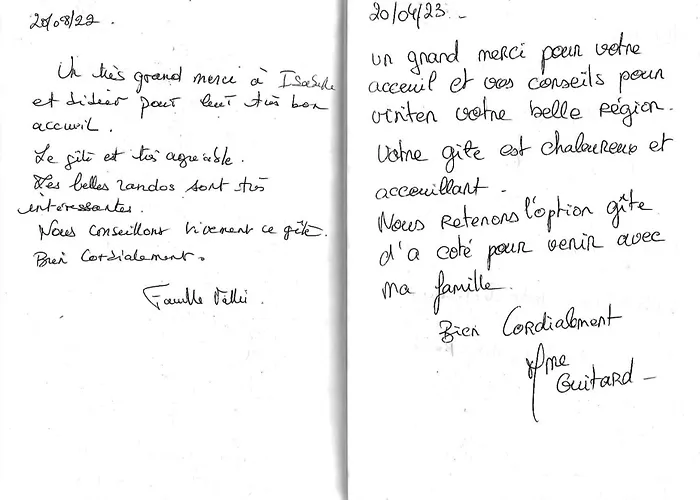 20/08/22.
Un très grand merci à Isabelle
et didier pour leur très bon
accueil.
Le gîte et très agréable.
Les belles randos sont très
intéressantes.
Nous conseillons vivement ce gîte.
Bien Cordialement.
Famille
20/04/23 -
un grand merci pour votre
acceuil et vos conseils pour
visiter votre belle région.
Votre gîte est chaleureux et
acceuillant.
Nous Retenons l'option gîte
d'a coté pour venir avec
ma famille.
Bien Cordialement
Mme
Guitard -